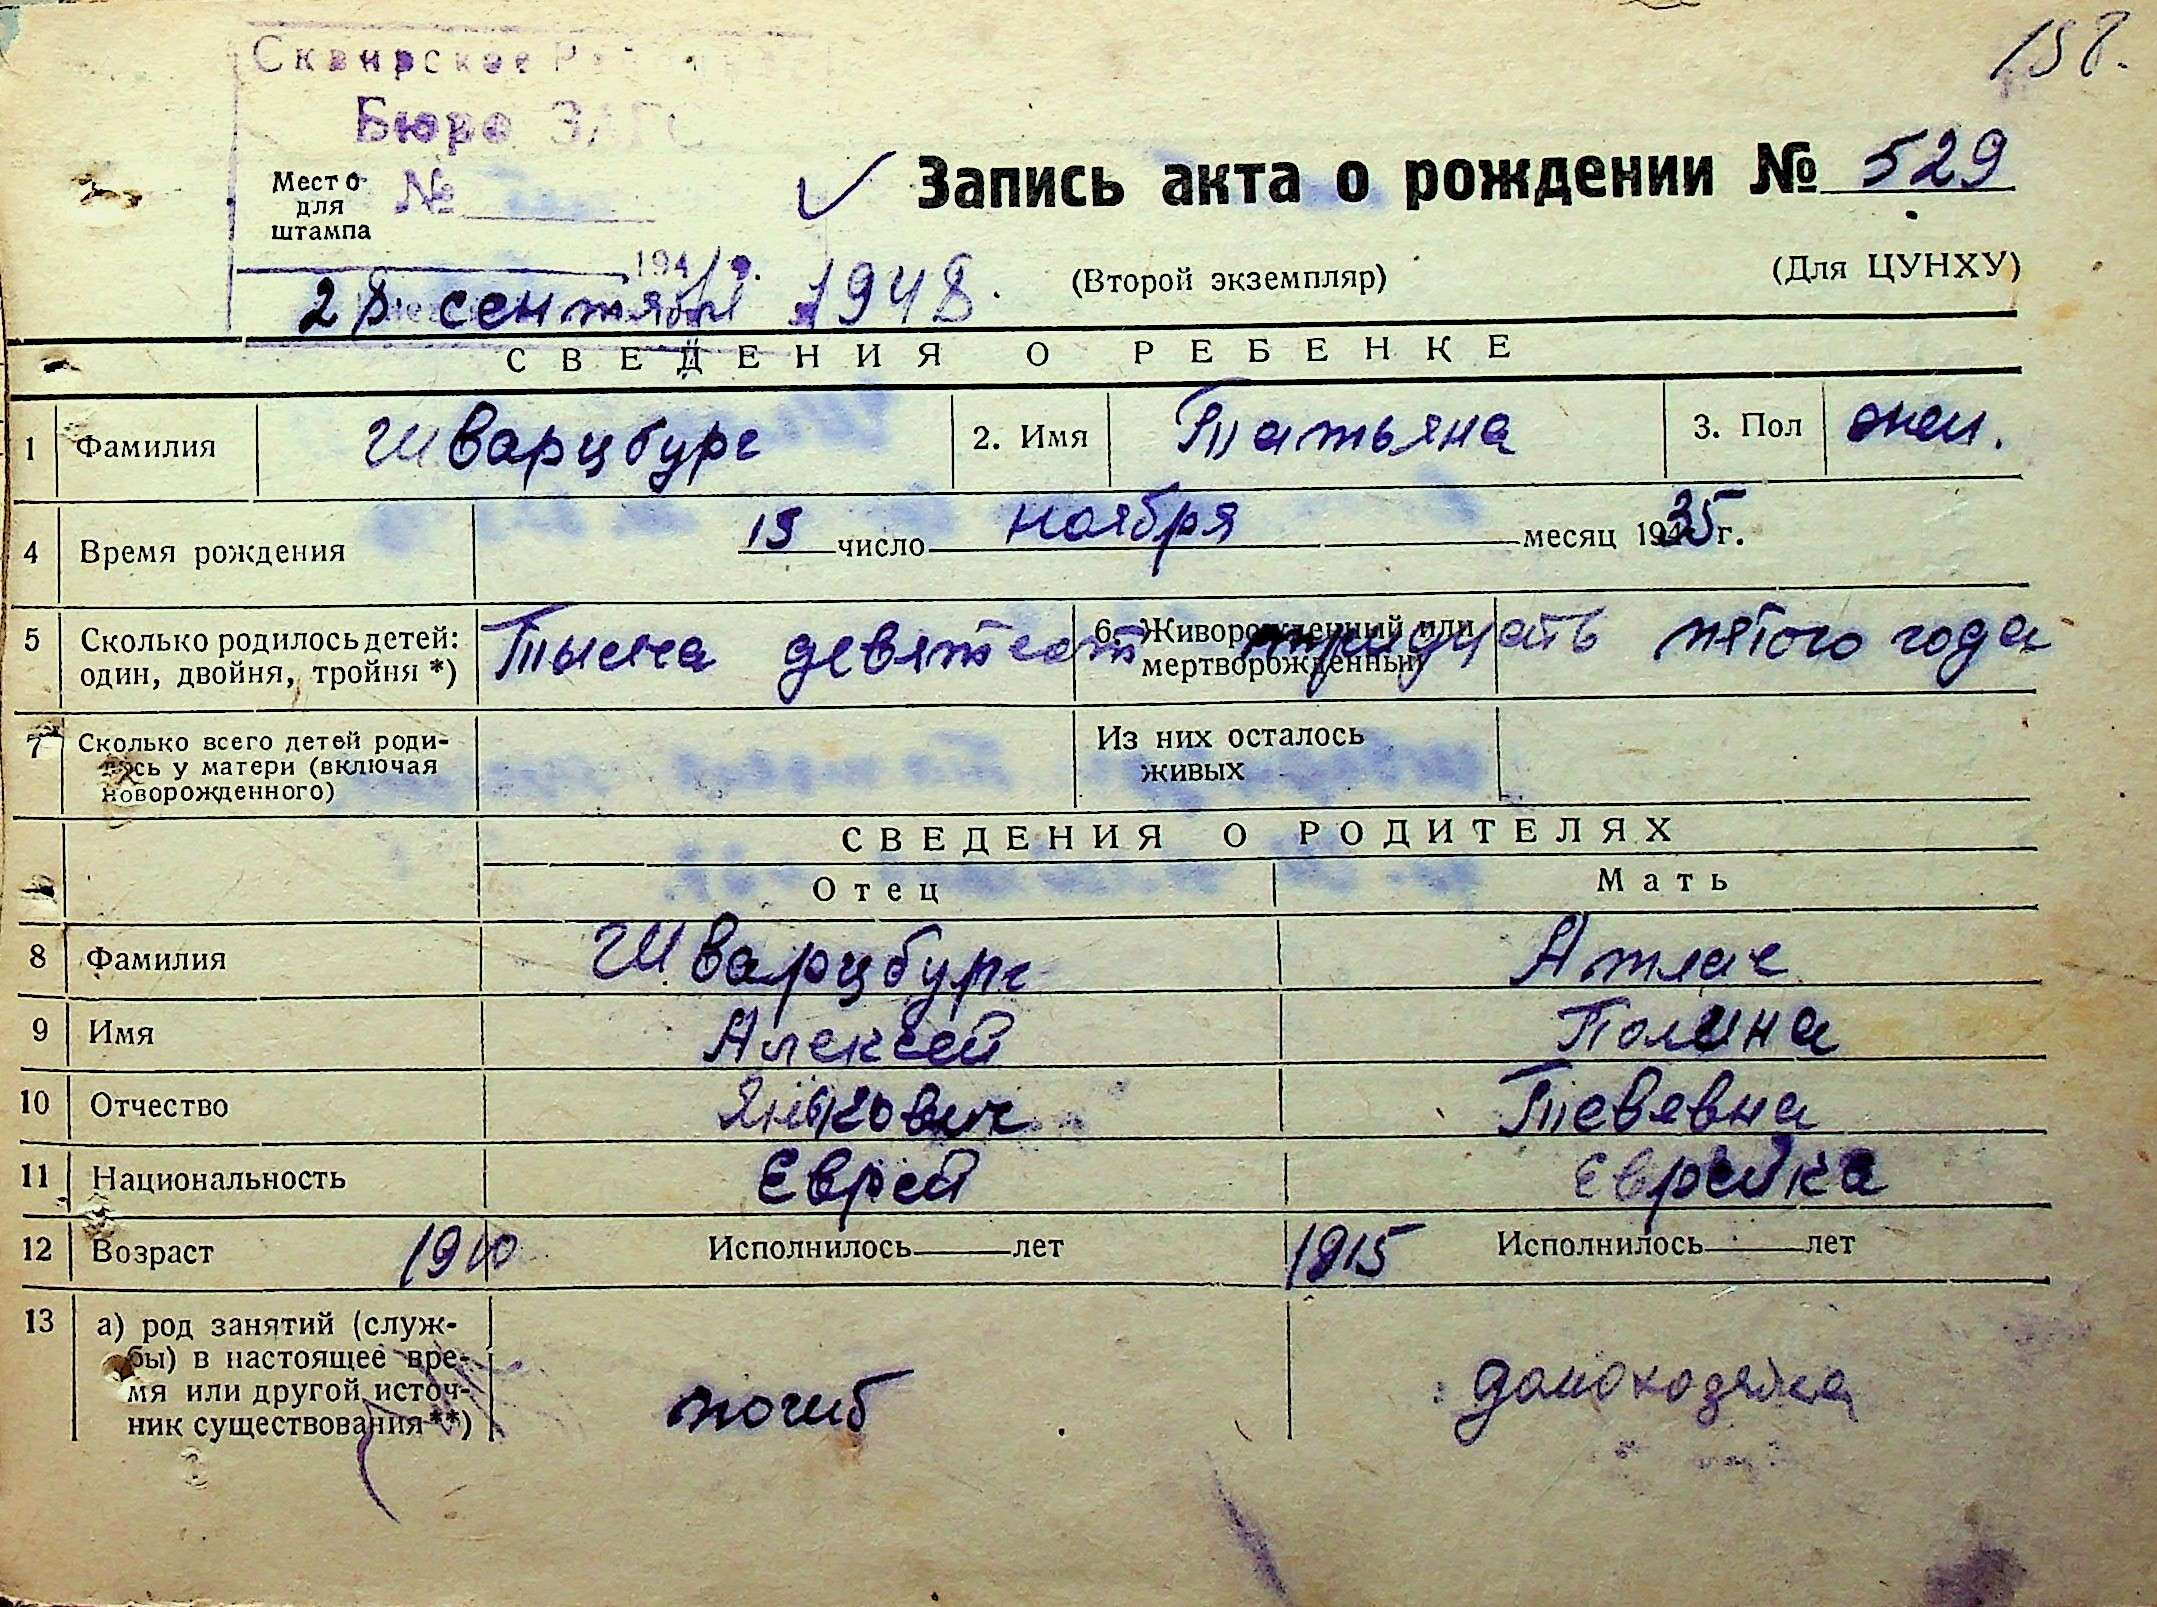 158.
Сквирское
Бюро ЗАГС
Место для штампа
№
Запись акта о рождении № 529
194 г.
28 сентября 1948.
(Второй экземпляр)
(Для ЦУНХУ)
СВЕДЕНИЯ О РЕБЕНКЕ
1 Фамилия Шварцбург 2. Имя Татьяна 3. Пол жен.
4 Время рождения 15 число ноября месяц 1935 г.
5 Сколько родилось детей: один, двойня, тройня *) 6. Живорожденный или мертворожденный
Тысяча девятсот тридцать пятого года
7 Сколько всего детей родилось у матери (включая новорожденного) Из них осталось живых
СВЕДЕНИЯ О РОДИТЕЛЯХ
Отец Мать
8 Фамилия Шварцбург Атлас
9 Имя Алексей Полина
10 Отчество Тевевна
11 Национальность Еврей Еврейка
12 Возраст 1910 Исполнилось лет 1915 Исполнилось лет
13 а) род занятий (служ-
бы) в настоящее вре-
мя или другой источ-
ник существования**)
погиб домохозяйка